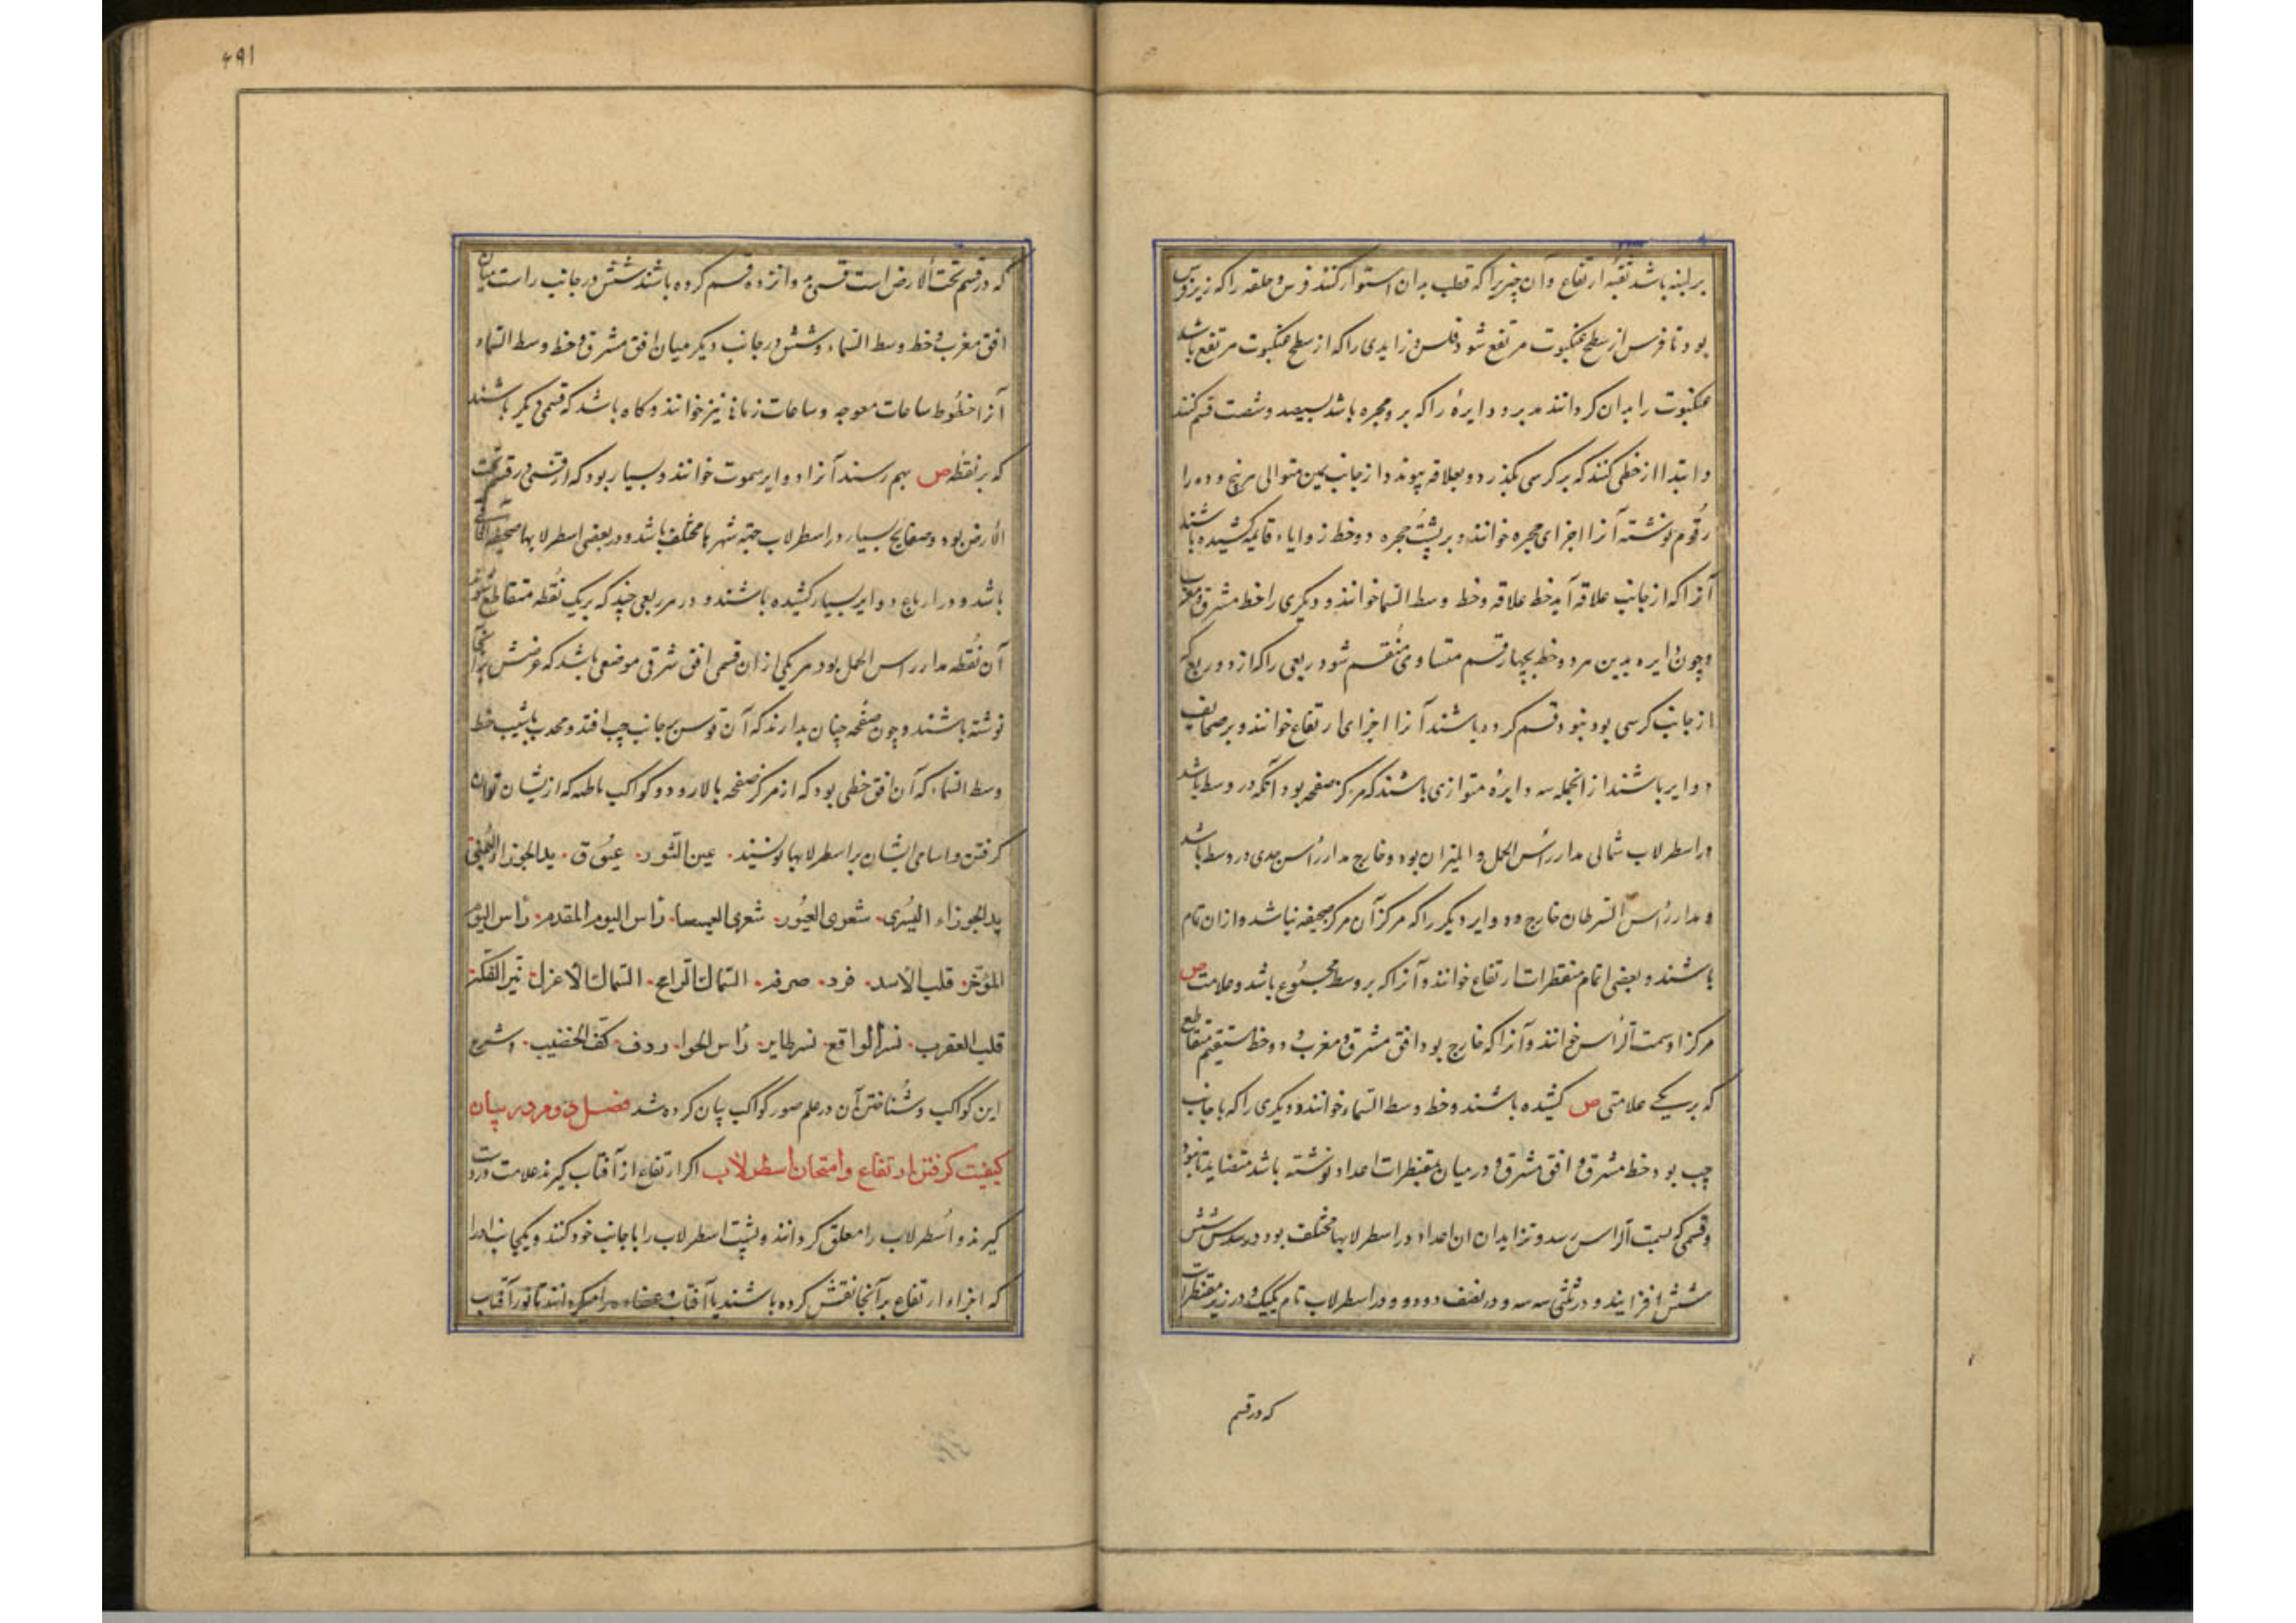 بر لبنه باشد ثقبهٔ ارتفاع و آن چیزیرا که قطب بدان استوار کنند فرس و حلقه را که زیر فرس
بود تا فرس از سطح عنکبوت مرتفع شود فلس و زایدی را که از سطح عنکبوت مرتفع باشد
عنکبوت را بدان کردانند مدیر و دایرهٔ را که بر و حجره باشد بسیصد و شصت قسم کنند
و ابتدا از خطی کنند که بر کرسی بگذرد و بعلاقه پیوندد و از جانب یمین متوالی پنج و ده را
رقوم نوشته آنرا اجزای حجره خوانند و بر پشت حجره دو خط زوایاء قایمه کشیده باشند
آنرا که از جانب علاقه آید خط علاقه و خط وسط السما خوانند و دیگری را خط مشرق و مغرب
و چون دایره بدین هر دو خط بچهار قسم متساوی منقسم شود ربعی را که از دو ربع که
از جانب کرسی بود بنود قسم کرده باشند آنرا اجزای ارتفاع خوانند و بر صحایف
دوایر باشند از انجمله سه دایرهٔ متوازی باشند که مرکز صفحه بود آنکه در وسط باشد
در اسطرلاب شمالی مدار رأس الحمل و المیزان بود و خارج مدار رأس جدی در وسط باشد
و مدار رأس السرطان خارج و دوایر دیگر را که مرکز آن مرکز صحیفه نباشد و ازان تام
باشند و بعضی اتمام مقنطرات ارتفاع خوانند و آنرا که بر وسط مجموع باشد و علامت ص
مرکز او سمت الرأس خوانند و آنرا که خارج بود افق مشرق و مغرب و دو خط مستقیم متقاطع
که بر یکی علامتی ص کشیده باشند و خط وسط السماء خوانند و دیگری را که با جانب
چپ بود خط مشرق و افق مشرق و در میان مقنطرات اعداد نوشته باشد متضایده تا نود
و قسمی که بسمت الرأس رسد و تزاید ان ان اعداد در اسطرلابها مختلف بود در سدس شش
شش افزایند و در ثلثی سه سه و در نصف دو دو و در اسطرلاب تام یک یک و در زیر مقنطرات
که در قسم
۴۹۱
که در قسم تحت الارض است قسمی به دوانزده قسم کرده باشند شش در جانب راست میان
افق مغرب و خط وسط السماء و شش در جانب دیکر میان افق مشرق و خط وسط السماء
آنرا خطوط ساعات معوجه و ساعات زمانی نیز خوانند و کاه باشد که قسمی دیکر باشند
که بر نقطه ص بهم رسند آنرا دوایر سموت خوانند و بسیار بود که از قسمی در قسم تحت
الارض بود و صفایح بسیار در اسطرلاب جهة شهرها مختلف باشد و در بعضی اسطرلابها صحیفه آفاقی
باشد و در ارباع دوایر بسیار کشیده باشند و در هر ربعی چند که بر یک نقطه متقاطع شوند
آن نقطه مدار راس الحمل بود هر یکی از ان قسمی افق شرقی موضعی باشد که عرضش بر آنجا
نوشته باشند و چون صفحه چنان بدارند که آن قوس بر جانب چپ افتد و محدب با شیب خط
وسط السماء که آن افق خطی بود که از مرکز صفحه بالا رود و کواکب باطنه که از یشان توان
کرفتن و اسامی ایشان بر اسطرلابها نویسند۰ عین الثور۰ عیوق۰ ید الجوزاء الیمنی
ید الجوزاء الیسری۰ شعری العبور۰ شعری الغمیصا۰ رأس الیوم المقدم۰ رأس الیوم
المؤخر۰ قلب الاسد۰ فرد۰ صرفه۰ السماک الرامح۰ السماک الاعزل۰ نیر الفکه۰
قلب العقرب۰ نسر الواقع۰ نسر طایر۰ رأس الحوا۰ ردف۰ کف الخضیب۰ و شرح
این کواکب و شناختن آن در علم صور کواکب بیان کرده شد فصل دوم در بیان
کیفیت کرفتن ارتفاع و امتحان اسطرلاب اکر ارتفاع از آفتاب کیرند علامت در دست
کیرند و اسطرلاب را معلق کردانند و پشت اسطرلاب را با جانب خود کنند و یکجانب او را
که اجزاء ارتفاع بر آنجا نقش کرده باشند با آفتاب و عضاده را میکردانند تا نور آفتاب